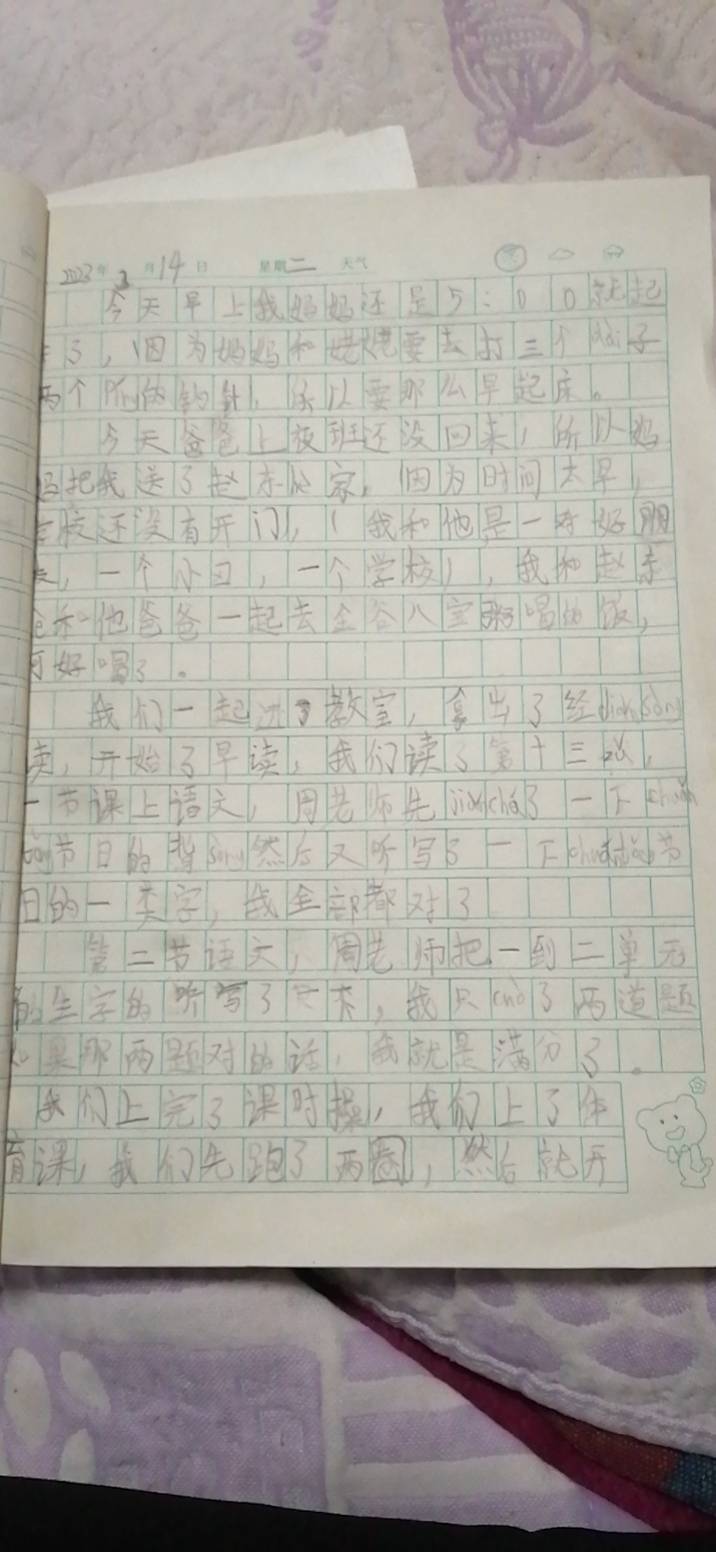 2023年3月14日 星期二 天气
今天早上我妈妈还是5:00就起
了,因为妈妈和姥姥要去打三个dài子
两个Píng的钓针,所以要那么早起床。
今天爸爸上夜班还没回来,所以妈
妈把我送了赵家,因为时间太早,
学校还没有开门,(我和他是一对好朋
友,一个小区,一个学校),我和赵
和他爸爸一起去全谷八宝粥喝的饭,
可好喝了。
我们一起进了教室,拿出了经diǎnsòng
读,开始了早读,我们读了第十三议,
一节课上语文,周老师先jiǎnchá了一下chuán
tǒng节日的背sòng然后又听写了一下chuántǒng节
日的一类字,我全部都对了
第二节语文,周老师把一到二单元
的生字的听写了,我只cuò了两道题
如果那两题对的话,我就是满分了。
我们上完了课时操,我们上了体
育课,我们先跑了两圈,然后就开